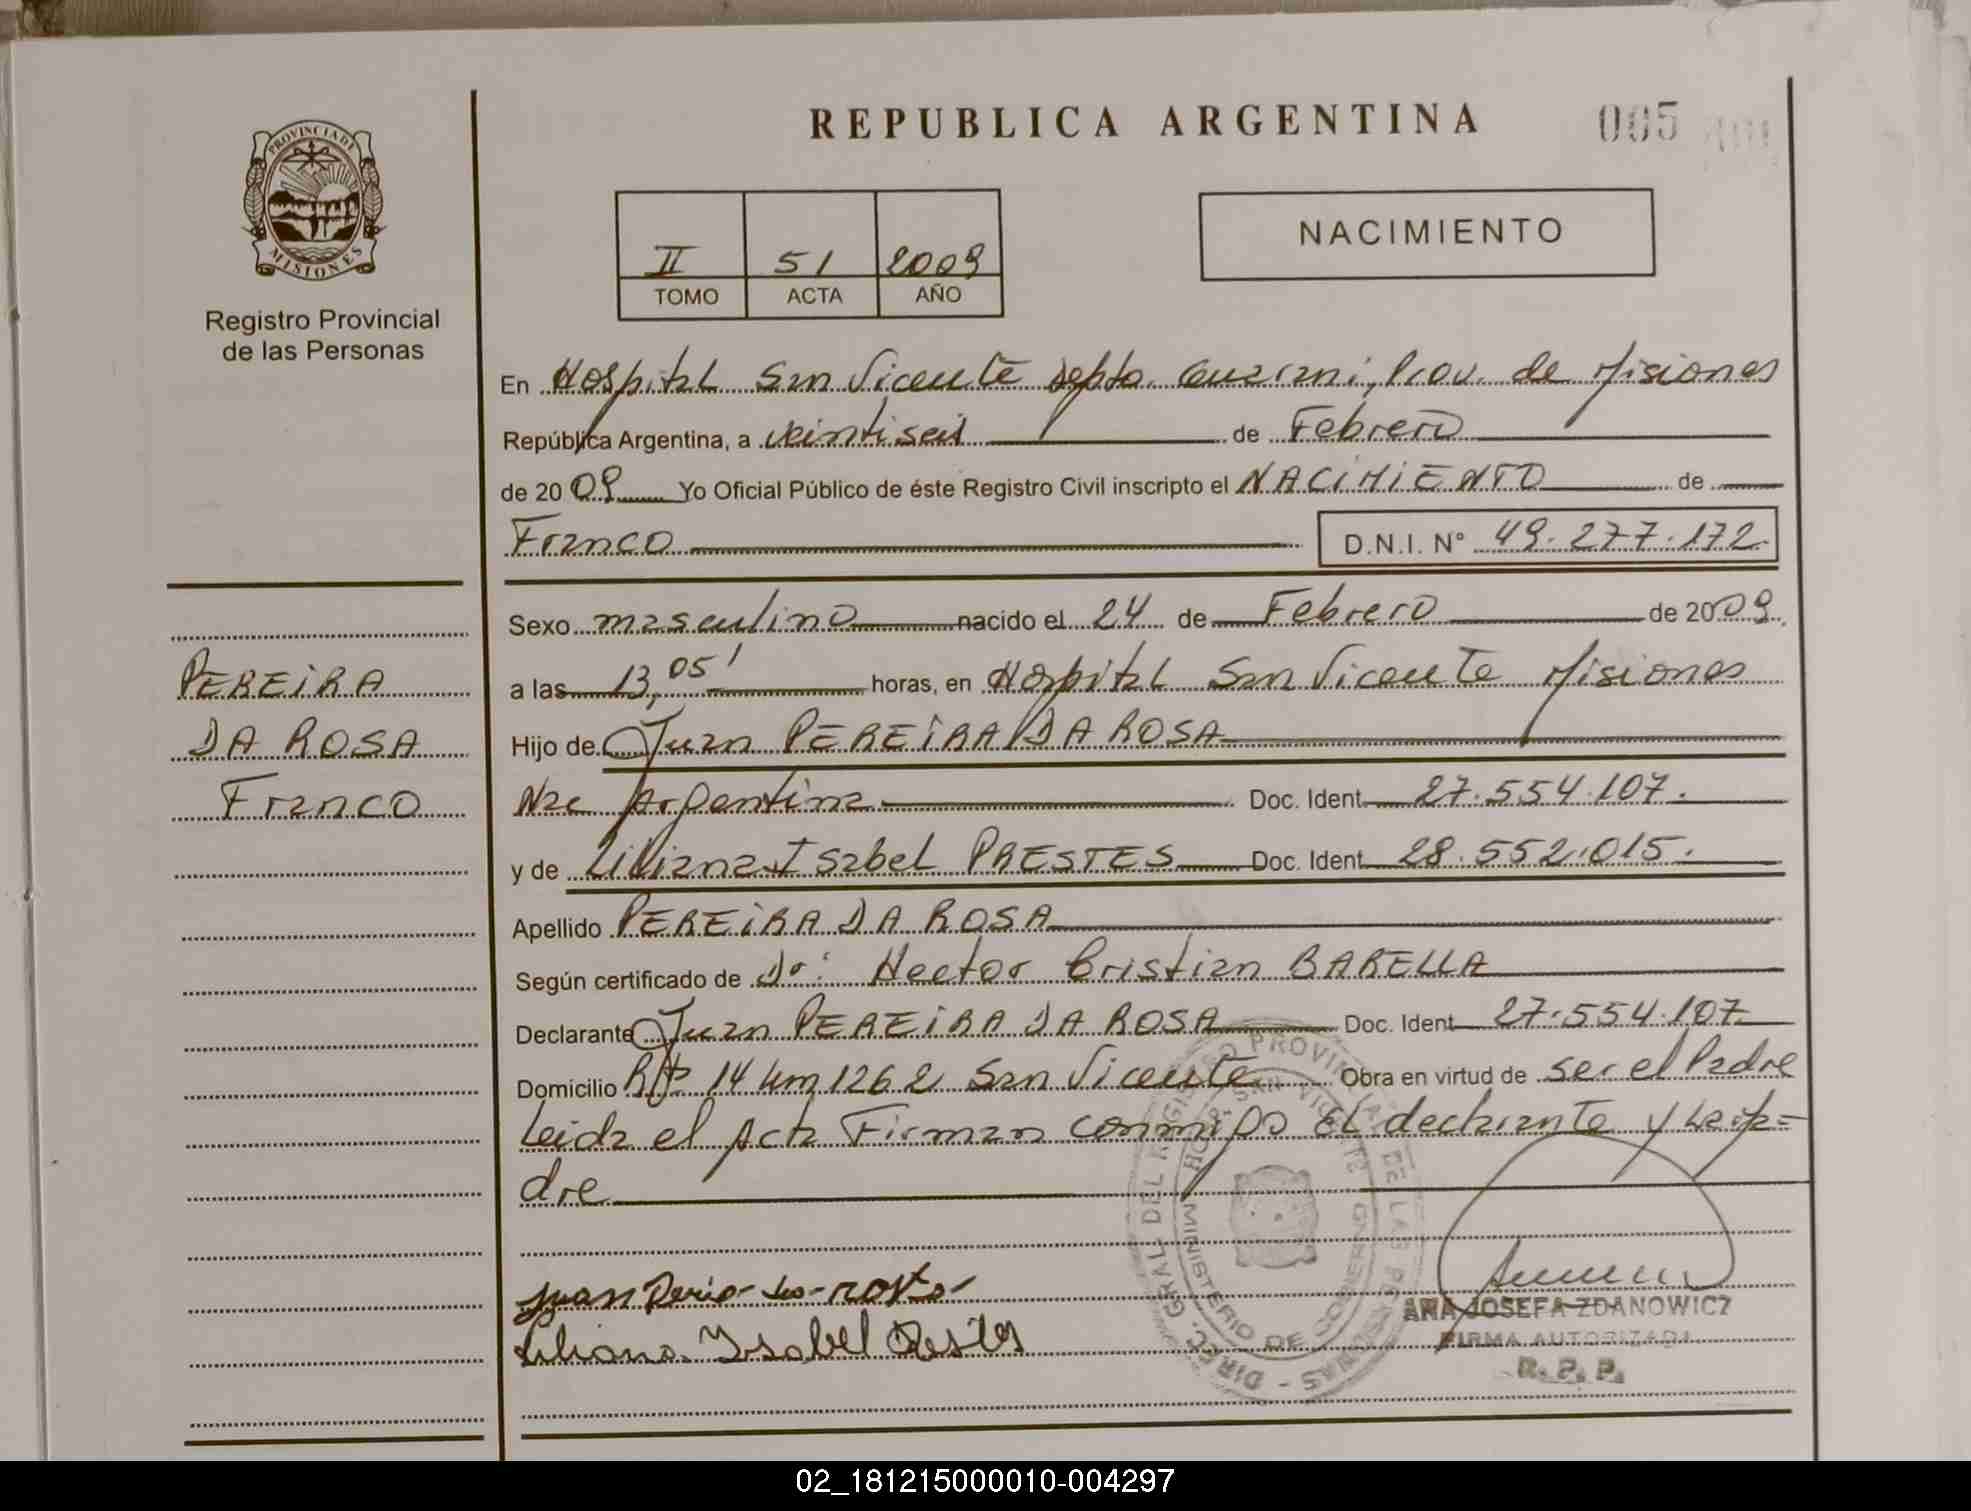 REPUBLICA ARGENTINA
005
PROVINCIA DE
MISIONES
Registro Provincial
de las Personas
II 51 2009
TOMO ACTA AÑO
NACIMIENTO
En Hospital San Vicente Depto. Guarani, Prov. de Misiones
República Argentina, a veintiseis de Febrero
de 2009 Yo Oficial Público de éste Registro Civil inscripto el NACIMIENTO de
Franco D.N.I. N° 49.277.172.
Sexo masculino nacido el 24 de Febrero de 2009
a las 13,05' horas, en Hospital San Vicente Misiones
Hijo de Juan PEREIRA DA ROSA
Nac Argentina Doc. Ident 27.554.107.
y de Liliana Isabel PRESTES Doc. Ident 28.552.015.
Apellido PEREIRA DA ROSA
Según certificado de Dr: Hector Cristian BARELLA
Declarante Juan PEREIRA DA ROSA Doc. Ident 27.554.107
Domicilio 14 km 1262 San Vicente Obra en virtud de ser el Padre
Leida el Acta Firman conmigo el declarante y
dre
PEREIRA
DA ROSA
Franco
Juan
Liliana Ysabel
DIREC. GRAL. DEL REGISTRO PROVINCIAL DE LAS PERSONAS
HOSP. SAN VICENTE
MINISTERIO DE GOBIERNO
ANA JOSEFA ZDANOWICZ
FIRMA AUTORIZADA
R. P. P.
02_181215000010-004297